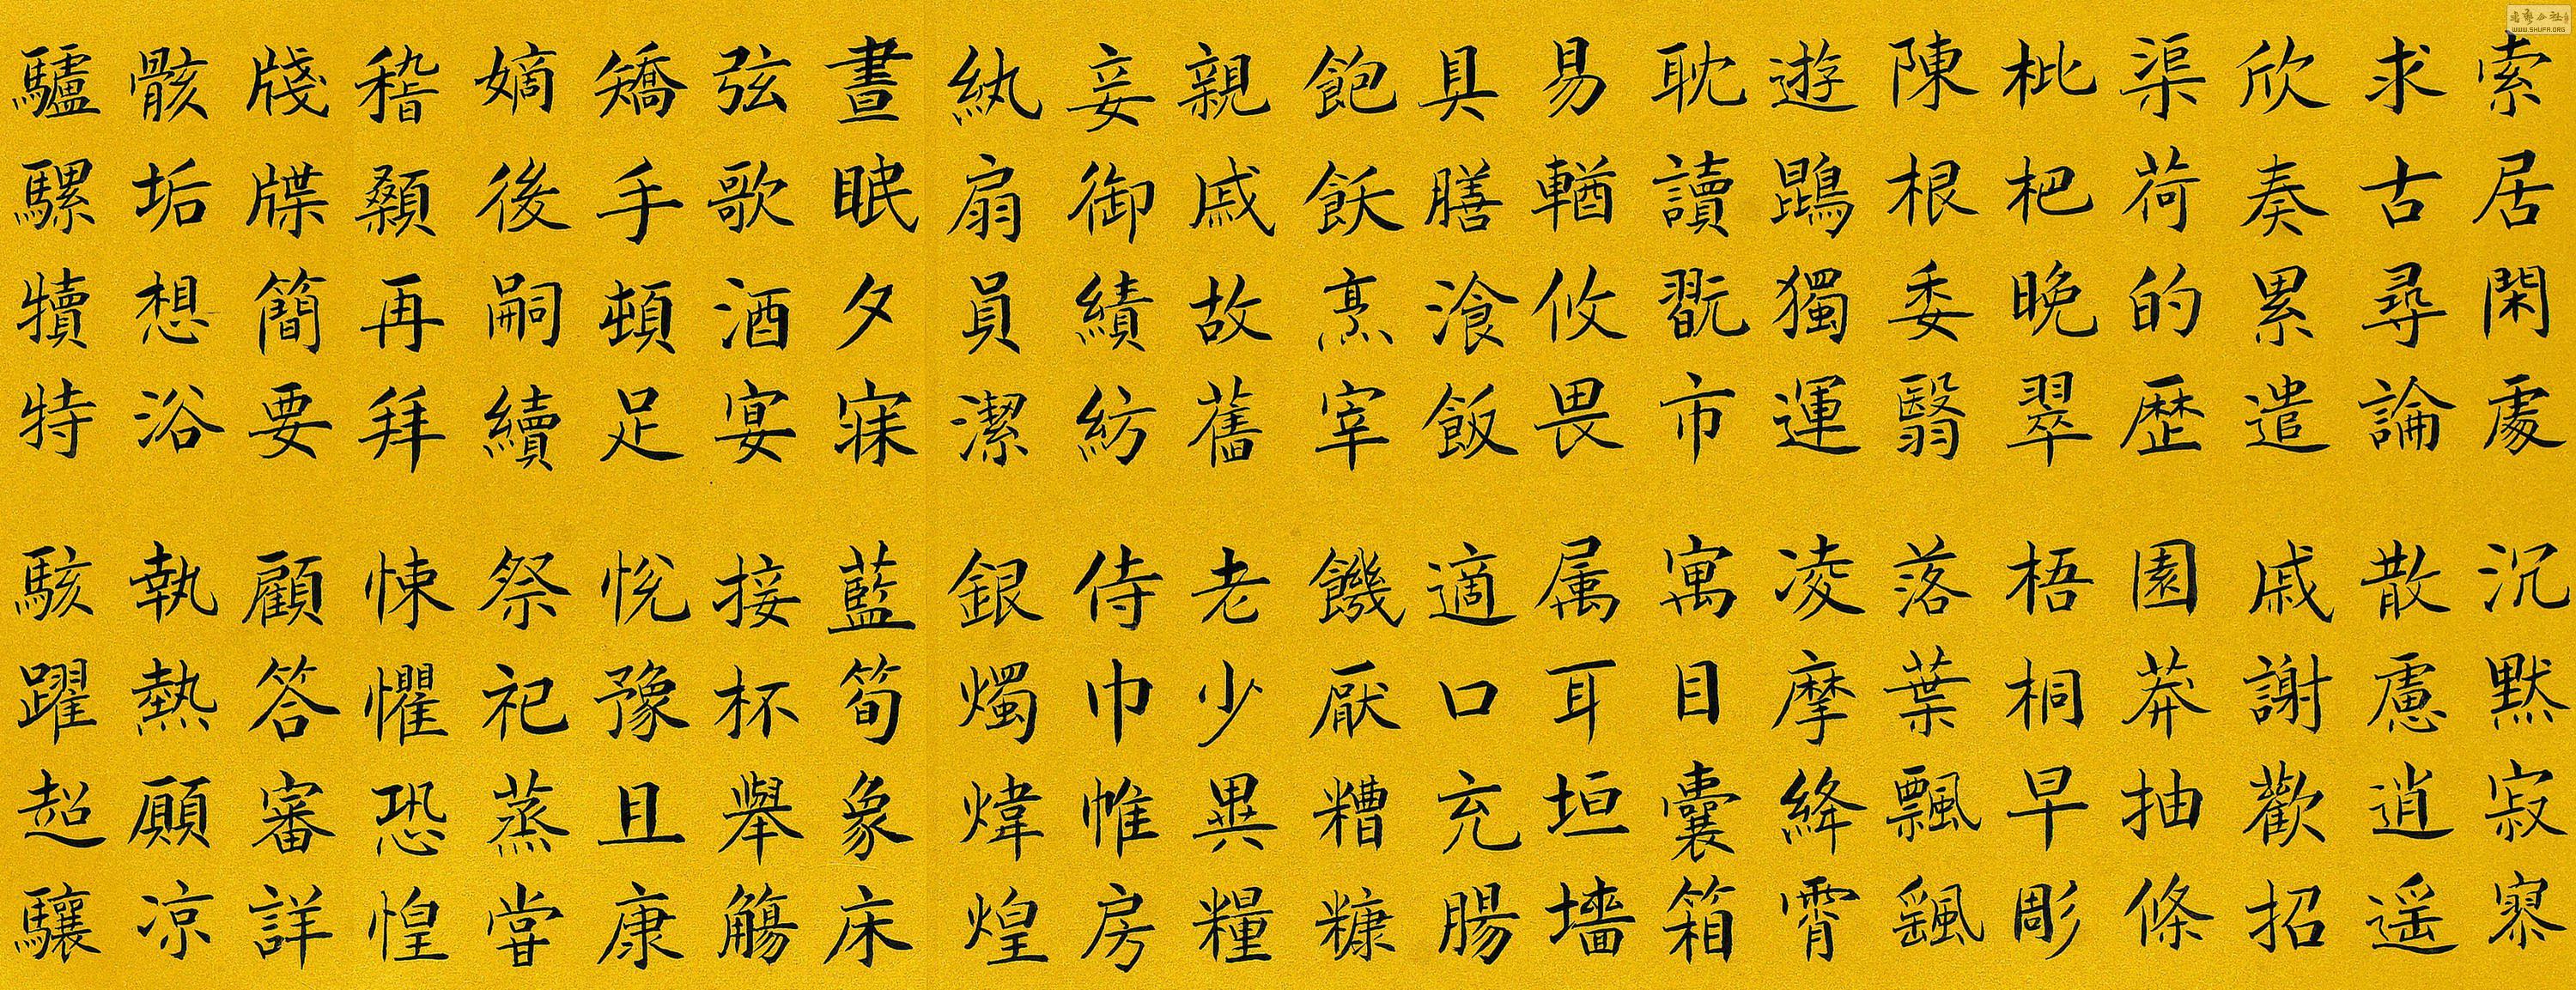 索居閑處沉黙寂寥
求古尋論散慮逍遥
欣奏累遣戚謝歡招
渠荷的歷園莽抽條
枇杷晚翠梧桐早彫
陳根委翳落葉飄颻
遊鵾獨運凌摩絳霄
耽讀翫市寓目囊箱
易輶攸畏属耳垣墻
具膳湌飯適口充腸
飽飫烹宰饑厭糟糠
親戚故舊老少異糧
妾御績紡侍巾帷房
紈扇員潔銀燭煒煌
晝眠夕寐藍筍象床
弦歌酒宴接杯舉觴
矯手頓足悅豫且康
嫡後嗣續祭祀蒸甞
稽顙再拜悚懼恐惶
牋牒簡要顧答審詳
骸垢想浴執熱願凉
驢騾犢特駭躍超驤
WWW.SHUFA.ORG